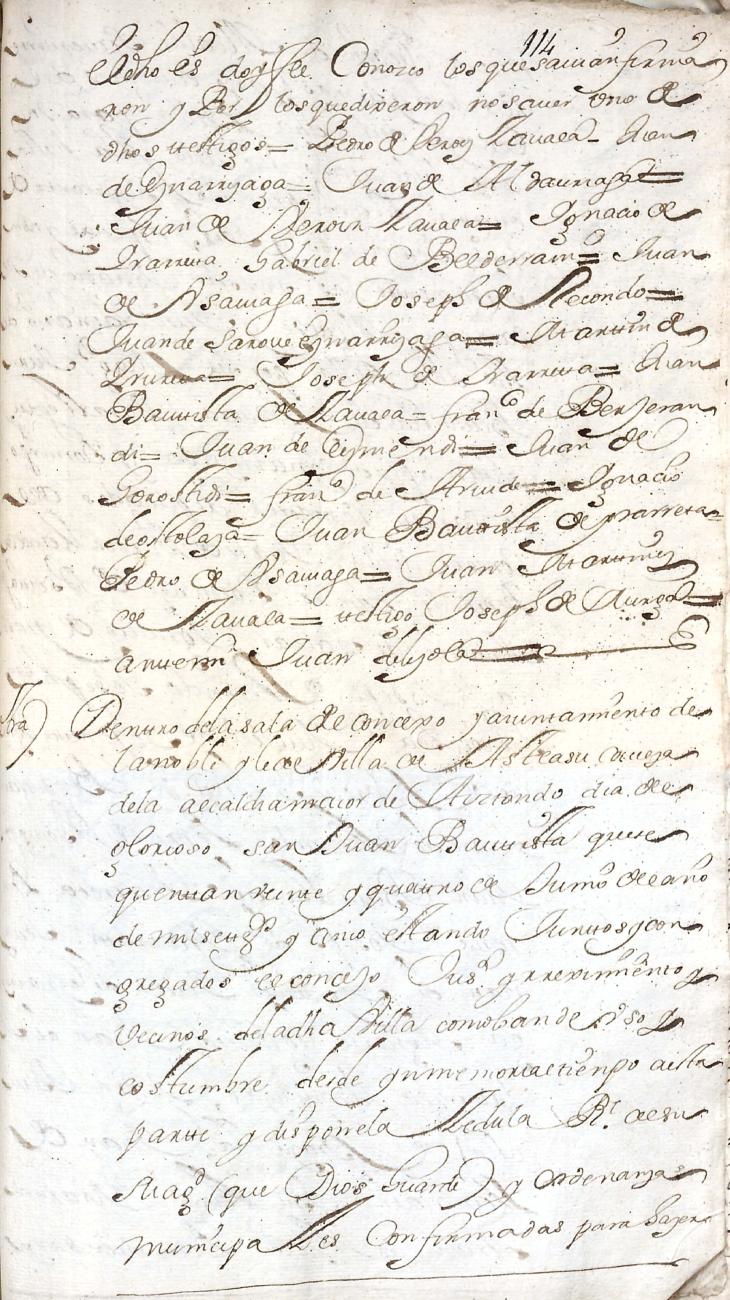 114
el dho es.no doy fee Conozco los que savian firma
ron y Por los que dixeron no saver uno de
dhos testigos = Pedro de Zavala = Juan
de Ynarriaga = Juan de Aldaurriaga =
Juan de Zavala = Ygnacio de
Yrarreta Gabriel de Belderrain = Juan
de Asaniaga = Joseph de Recondo =
Juan de Sarove Ynarriaga = Martin de
Yrureta = Joseph de Yrarreta = Juan
Bauttista de Zavala = fran.co de Berjeran
di = Juan de Eymendi = Juan de
Gorostidi = fran.co de = Ygnacio
de ostolaza = Juan Bauttista de Yrarreta =
Pedro de Asaniaga = Juan Martinez
de Zavala = testigo Joseph de =
antemi Juan de
Dentro de la sala de concexo y aiuntamiento de
la noble y leal Villa de Asteasu caveza
de la alcaldia maior de Aiztondo dia de
glorioso san Juan Bauttista que se
quentan veinte y quatro de Junio del año
de mil sett.os y cinco estando Juntos y con
gregados el concejo Jus.a y rrexim.iento y
vecinos de la dha Villa como lo an de vso y
costumbre desde ynmemorial tiempo a esta
parte y dispone la Zedula R.l de su
Mag.d (que Dios Guarde) y ordenanzas
municipales Confirmadas para hazer